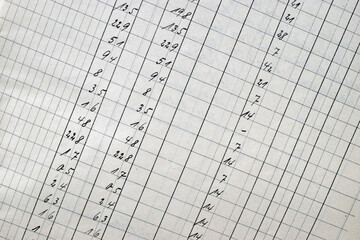 13.5
22.9
5.1
9.4
8
3.5
1.6
4.8
22.8
1.7
0.5
2.4
6.3
1.6
1
19.8
13.5
22.9
5.1
9.4
8
3.5
1.6
4.8
22.8
1.7
0.5
2.4
6.3
1.6
21
21
28
7
42
21
7
14
-
7
14
7
14
14
14